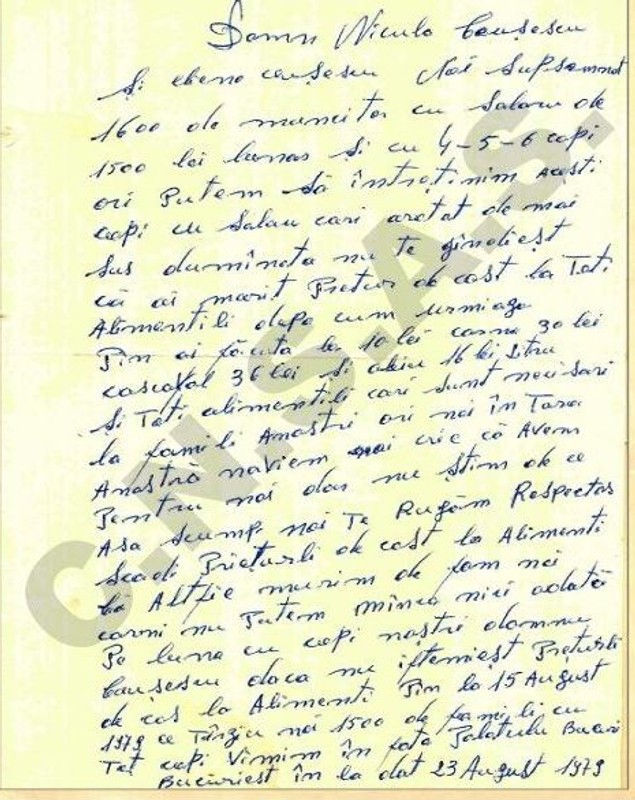 Domn Niculo Caușescu
Și elena caușescu Noi supsemnat
1600 de muncitor cu salaru de
1500 lei lunar și cu 4-5-6 copi
ori Putem să întrețînim acești
copi cu salau cari aratat de mai
sus dumîneta nu te gîndiest
că ai marit Prețur de cost la Toti
Alimentili dopa cum urmiaza
Pin ai făcuta la 10 lei carne 30 lei
cascaval 36 lei și uleiu 16 lei litru
și Toti alimentili cari sunt necisari
la famili Anoastri ori noi în Tara
Anoastră naviem mai cric că Avem
Pentru noi dar nu știm de ce
Asa scump noi Te Rugăm Respectos
scadi Priețurli de cost la Alimenti
că Altfie murim de fom noi
carni nu Putem mînca nici odată
Pe luna cu copi noștri domnu
Caușescu daca nu iftemiest Prețurili
de cos la Alimenti Pin la 15 August
1979 ce Tîrziu noi 1500 de famili cu
Tot copi Vimim în fata Palatulu Bucuri
Bucuriest în la dat 23 August 1979
C.N.S.A.S.